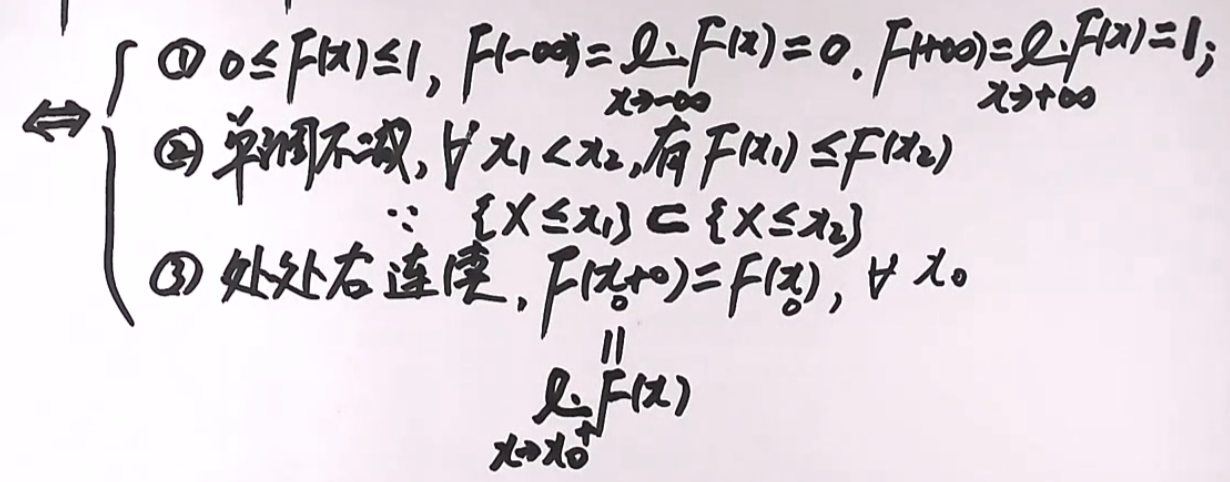 ⇔ { ① 0≤F(x)≤1, F(-∞)=l.F(x)=0. F(+∞)=l.F(x)=1;
x→-∞ x→+∞
② 单调不减, ∀ x₁<x₂, 有 F(x₁)≤F(x₂)
∵ {X≤x₁}⊂{X≤x₂}
③ 处处右连续, F(x₀+0)=F(x₀), ∀ x₀
||
l.F(x)
x→x₀⁺